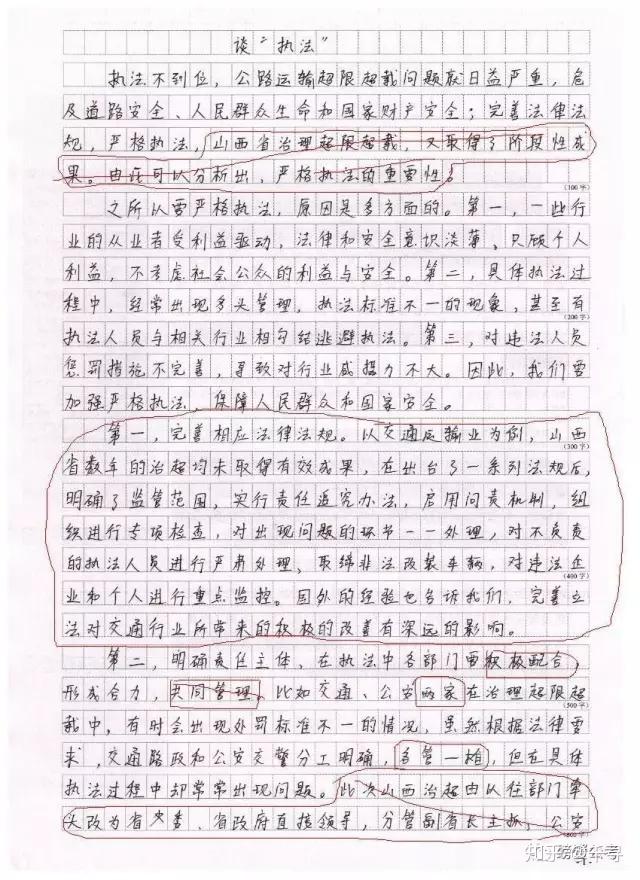 谈“执法”
执法不到位，公路运输超限超载问题就日益严重，危
及道路安全、人民群众生命和国家财产安全；完善法律法
规，严格执法，山西省治理超限超载，又取得了阶段性成
果。由此可以分析出，严格执法的重要性。
(100字)
之所以要严格执法，原因是多方面的。第一，一些行
业的从业者受利益驱动，法律和安全意识淡薄、只顾个人
利益，不考虑社会公众的利益与安全。第二，具体执法过
程中，经常出现多头管理，执法标准不一的现象，甚至有
(200字)
执法人员与相关行业相勾结逃避执法。第三，对违法人员
惩罚措施不完善，导致对行业威摄力不大。因此，我们要
加强严格执法，保障人民群众和国家安全。
第一，完善相应法律法规。以交通运输业为例，山西
(300字)
省数年的治超均未取得有效成果，在出台了一系列法规后，
明确了监管范围，实行责任追究办法，启用问责机制，组
织进行专项检查，对出现问题的环节一一处理，对不负责
的执法人员进行严肃处理、取缔非法改装车辆，对违法企
(400字)
业和个人进行重点监控。国外的经验也告诉我们，完善立
法对交通行业所带来的积极的改善有深远的影响。
第二，明确责任主体、在执法中各部门要积极配合，
形成合力，共同管理。比如交通、公安两家在治理超限超
(500字)
载中，有时会出现处罚标准不一的情况，虽然根据法律要
求，交通路政和公安交警分工明确，各管一摊，但在具体
执法过程中却常常出现问题。此次山西治超由以往部门牵
头改为省党委、省政府直接领导，分管副省长主抓，公安
(600字)
知乎